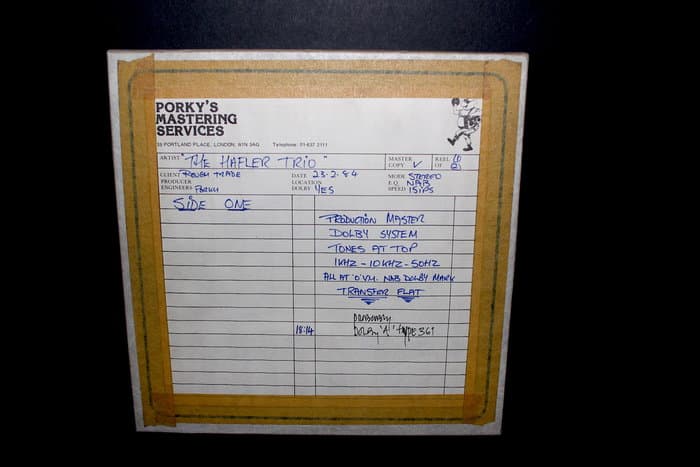 PORKY'S
MASTERING
SERVICES
55 PORTLAND PLACE, LONDON, W1N 3AG Telephone: 01-637 2111
ARTIST "THE HAFLER TRIO" MASTER COPY ✓ REEL OF
CLIENT ROUGH TRADE DATE 23·2·84 MODE STEREO
PRODUCER LOCATION E.Q. NAB
ENGINEERS PORKY DOLBY YES SPEED 15IPS
SIDE ONE
PRODUCTION MASTER
DOLBY SYSTEM
TONES AT TOP
1KHZ - 10KHZ - 50HZ
ALL AT 'O' V.U. NAB DOLBY MARK
TRANSFER FLAT
PROBABLY
18:14 DOLBY 'A' TYPE 361